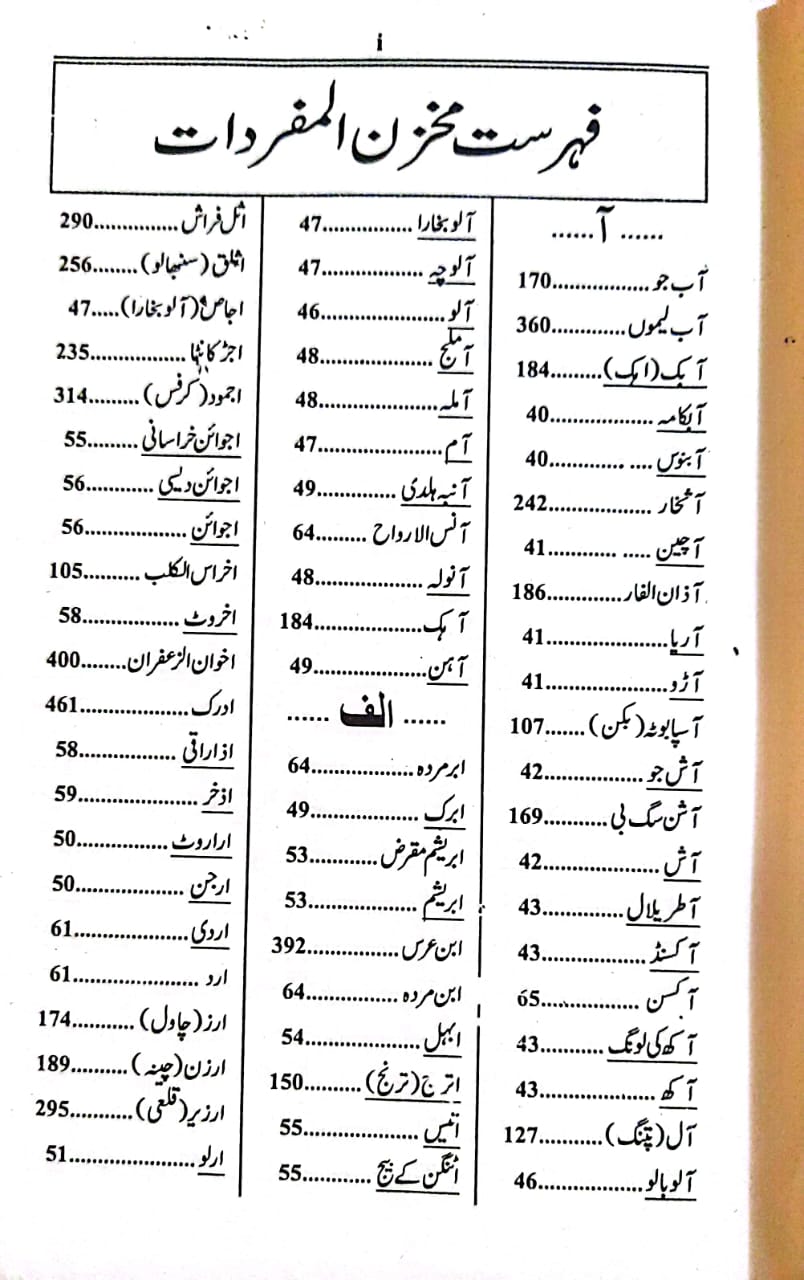 i
فہرست مخزن المفردات
...... آ ......
آب جو.................170
آب لیموں.............360
آبک (اہک).........184
آبکامہ..................40
آبنوس.... .............40
آشخار..................242
آچین..... ............41
آذان الفار.............186
آریا.....................41
آڑو.....................41
آسپابوٹہ (بکن).......107
آش جو.................42
آش سگ بی...........169
آش.....................42
آطریلال..............43
آکسنڈ..................43
آکسن.................65
آکھ کی لونگ...........43
آکھ....................43
آل (پتنگ)...........127
آلوبالو..................46
آلو بخارا................47
آلوچہ..................47
آلو.....................46
آملج...................48
آملہ....................48
آم......................47
آنبہ ہلدی..............49
آنس الارواح.........64
آنولہ...................48
آہک..................184
آہن....................49
...... الف ......
ابر مردہ................64
ابرک..................49
ابریشم مقرض..........53
ابریشم.................53
ابن عرس..............392
ابن مردہ...............64
ابہل...................54
اترج (ترنج)..........150
اتیس..................55
اٹنگن کے بیج...........55
اثل فراش..............290
اثلق (سنبھالو)........256
اجاص (آلو بخارا).....47
اجڑ کانٹا................235
اجمود (کرفس).........314
اجوائن خراسانی.........55
اجوائن دیسی............56
اجوائن.................56
اخراس الکلب..........105
اخروٹ................58
اخوان الزعفران........400
ادرک..................461
اذاراقی................58
اذخر...................59
اراروٹ...............50
ارجن..................50
اردی...................61
ارد.....................61
ارز (چاول)...........174
ارزن (چینہ)..........189
ارزیر (قلعی)...........295
ارلو.....................51